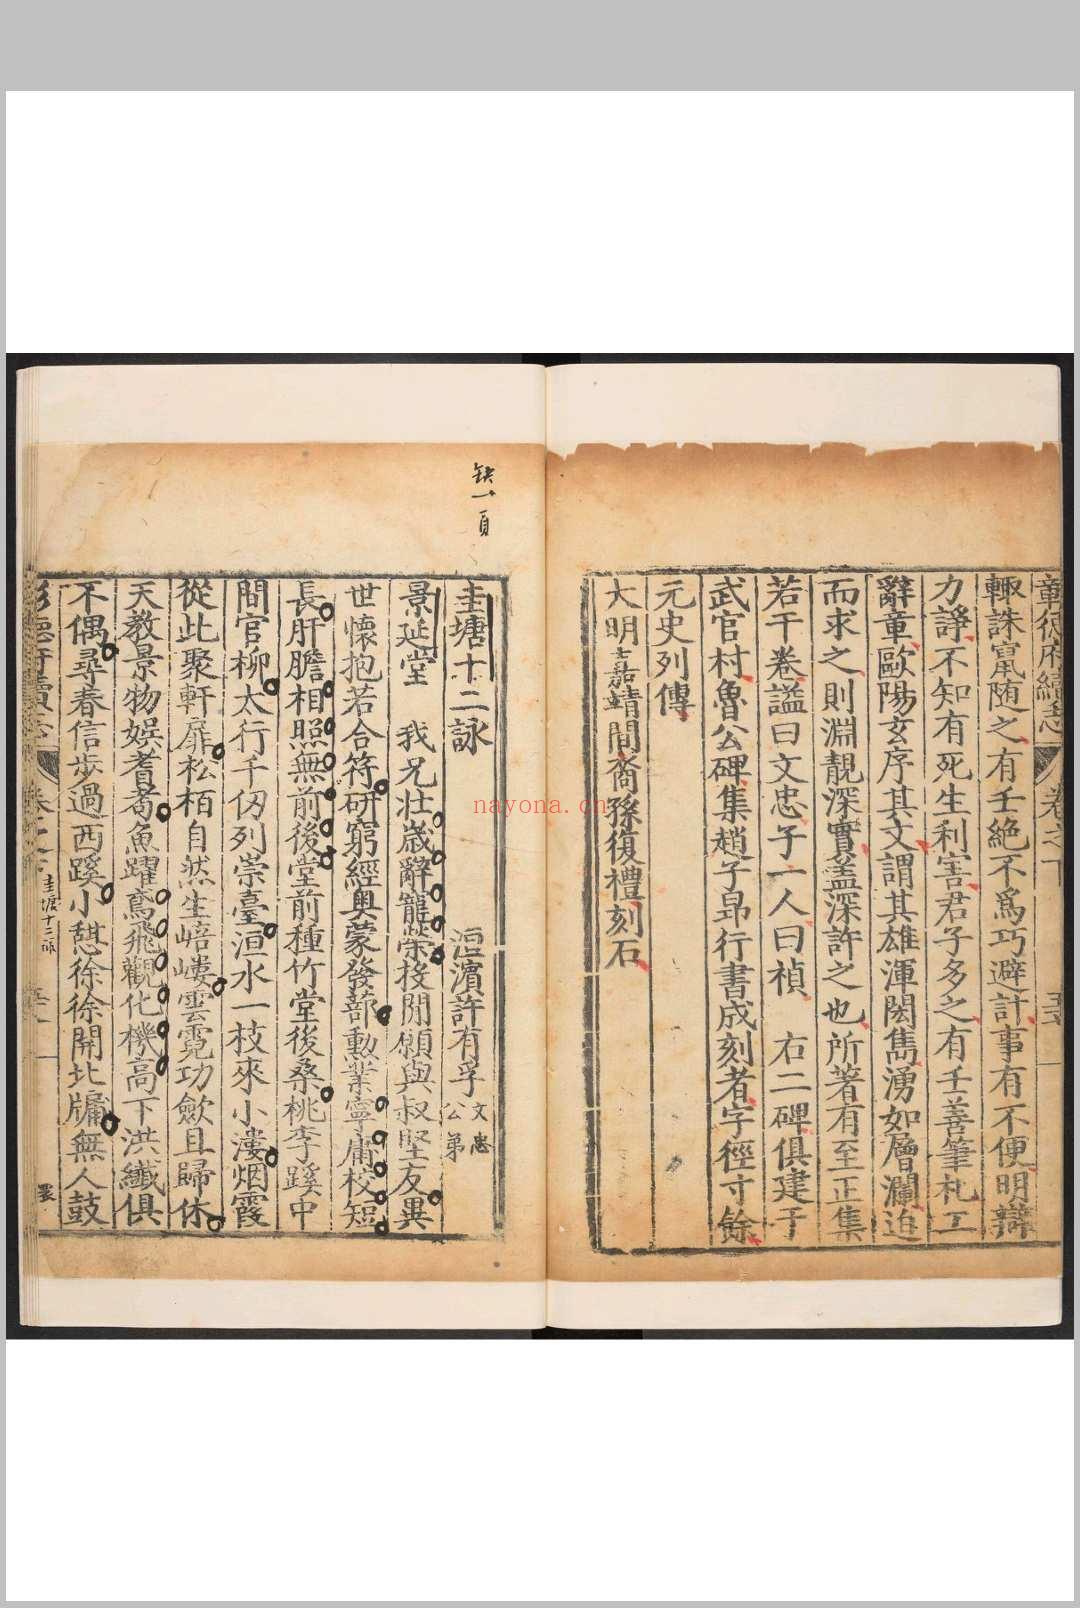 彰德府續志 卷之下
輙誅竄随之有壬絶不爲巧避計事有不便明辯
力諍不知有死生利害君子多之有壬善筆札工
辭章歐陽玄序其文謂其雄渾閎雋湧如層瀾迫
而求之則淵靚深實盖深許之也所著有至正集
若干卷謚曰文忠子一人曰楨 右二碑俱建于
武官村魯公碑集趙子昻行書成刻者字徑寸餘
元史列傳
大明嘉靖間裔孫復禮刻石
缺一頁
圭塘十二詠
洹濱許有孚文忠公弟
景延堂 我兄壯歲辭寵榮投閒願與叔堅友異
世懷抱若合符研窮經奥蒙發蔀勲業寧庸校短
長肝膽相照無前後堂前種竹堂後桑桃李蹊中
間官柳太行千仭列崇臺洹水一枝來小漊烟霞
從此聚軒扉松栢自然生嵭嶁雲霓功歛且歸休
天教景物娱耆耇魚躍鳶飛觀化機高下洪纖俱
不偶尋春信步過西蹊小憇徐徐開北牖無人鼓
彰德府續志 卷之下 圭塘十二詠
nayona.cn